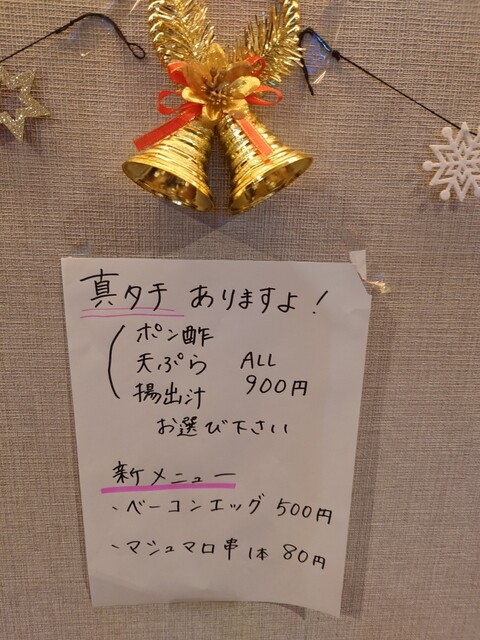 真タチ ありますよ!
ポン酢
天ぷら ALL
揚出汁 900円
お選び下さい
新メニュー
・ベーコンエッグ 500円
・マシュマロ串 1本 80円